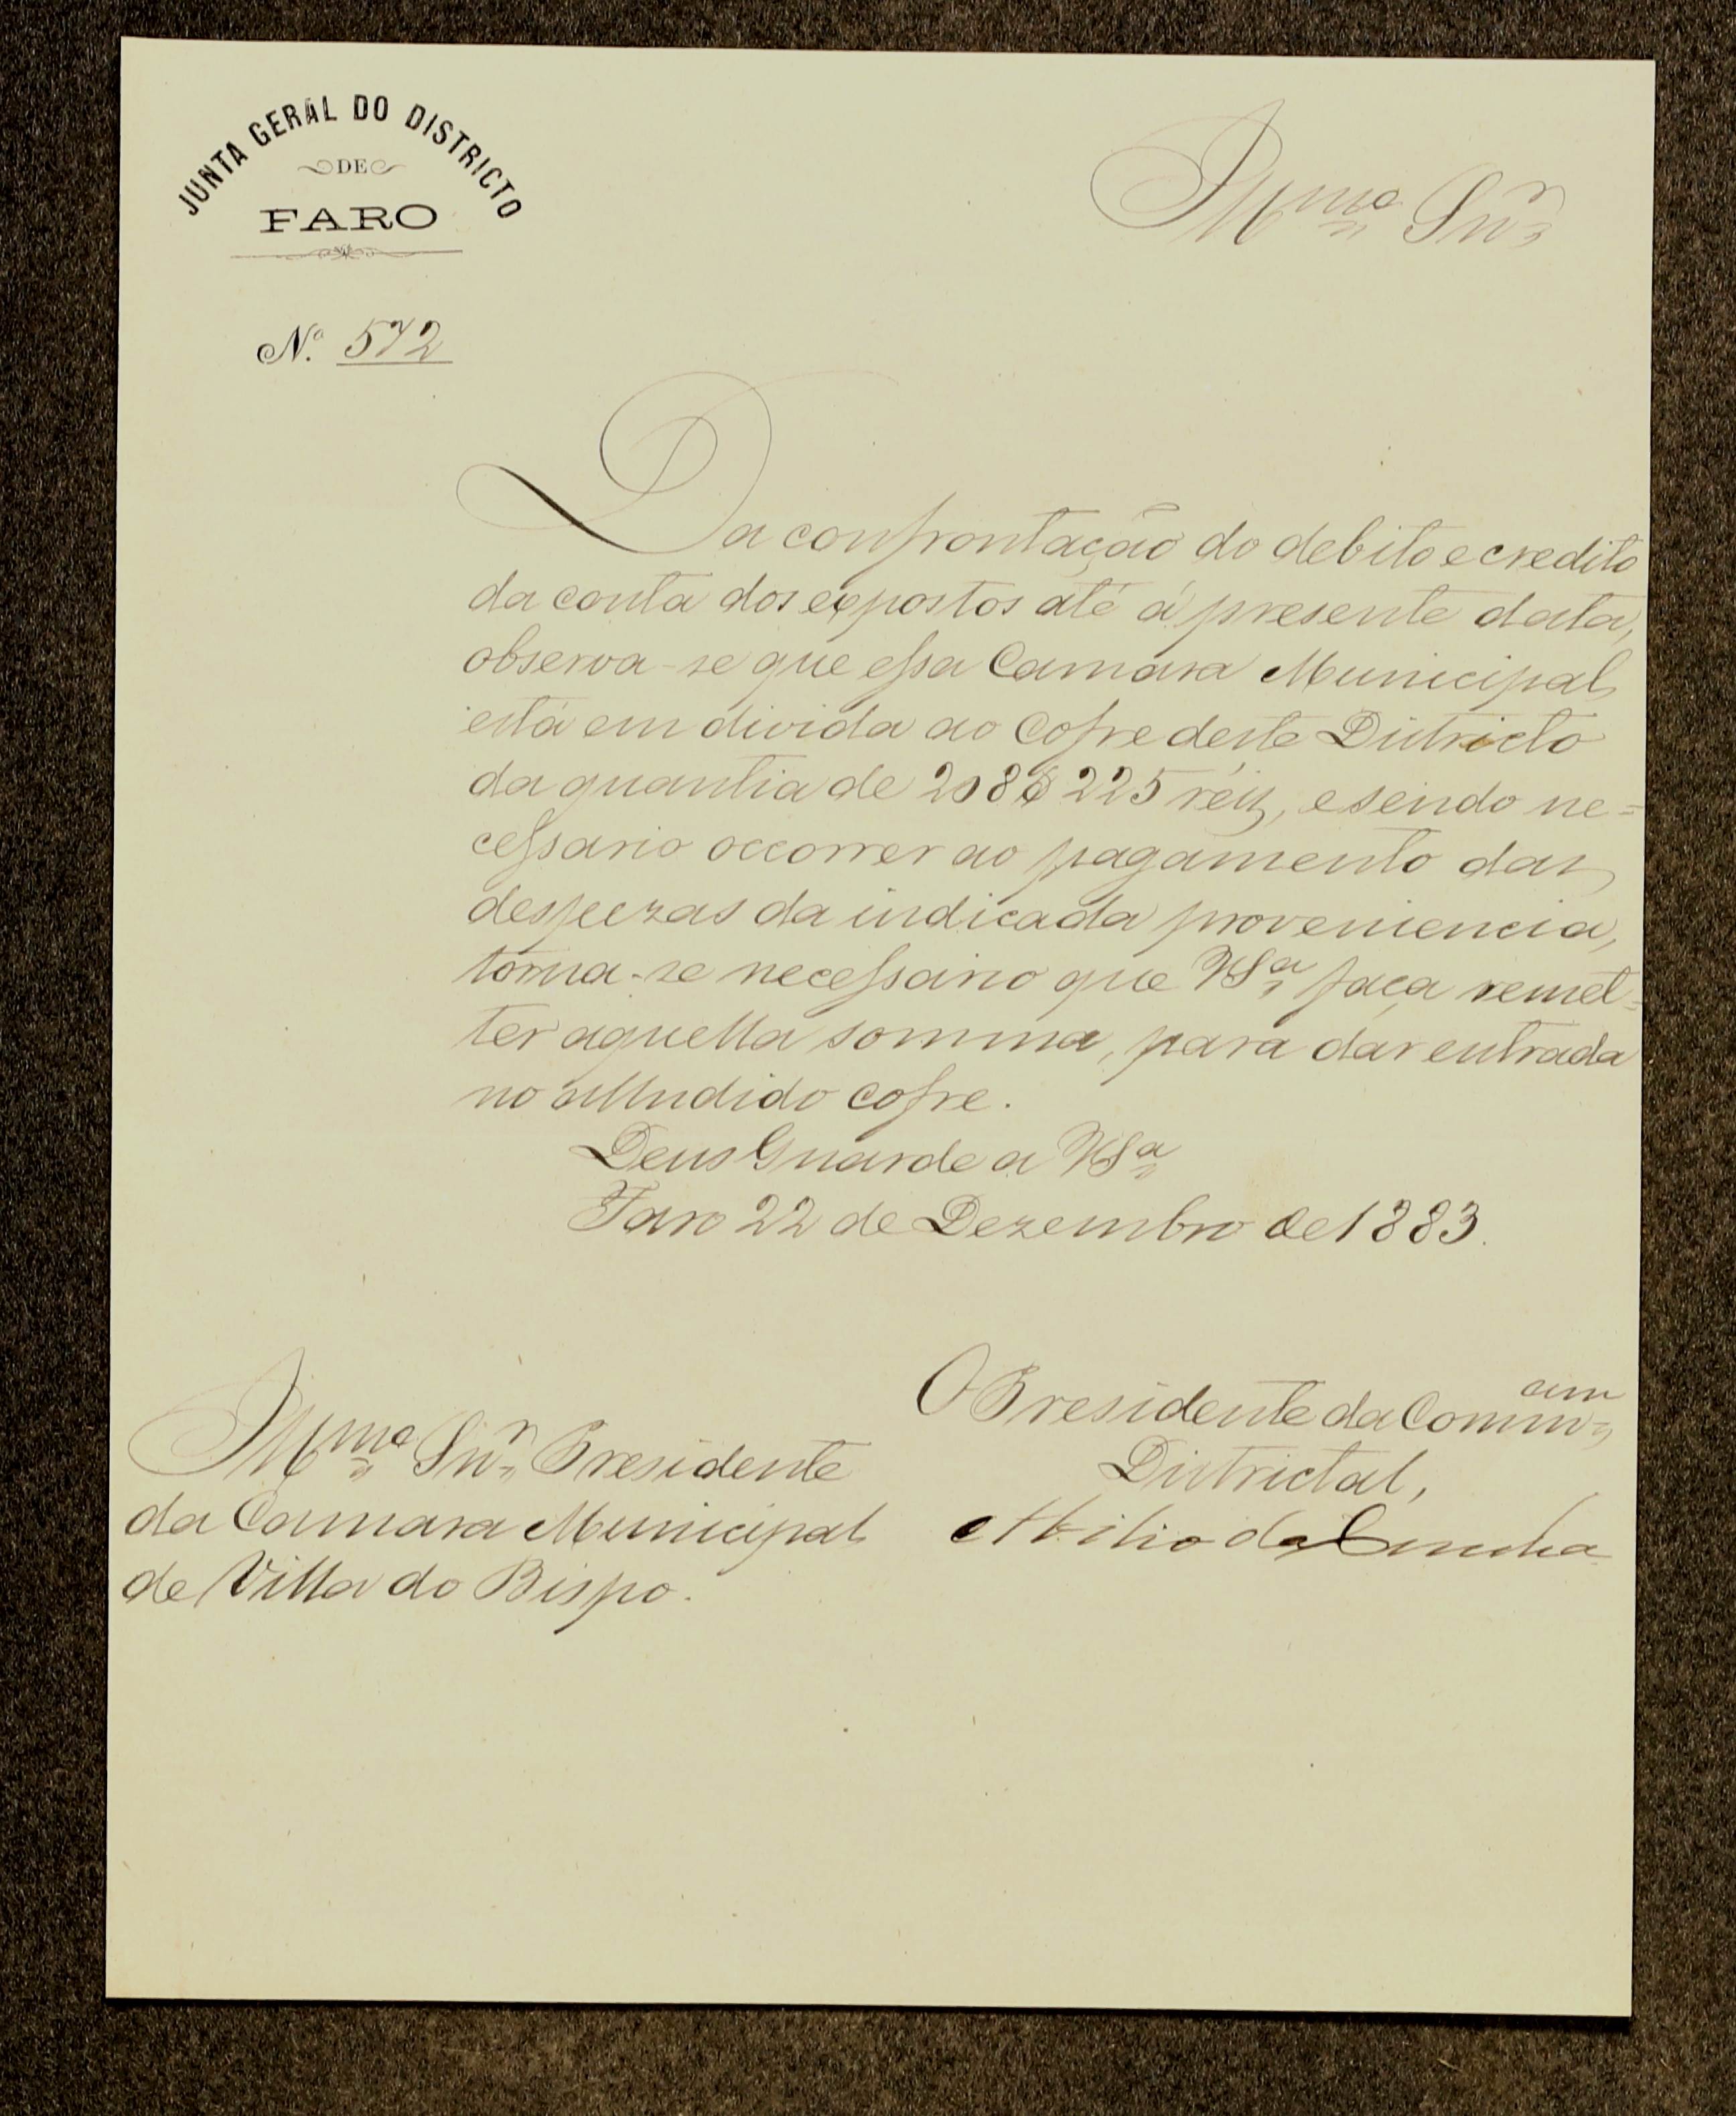 JUNTA GERAL DO DISTRICTO
DE
FARO
Illmo Snr
N.o 572
Da confrontação do debito e credito
da conta dos expostos até á presente data,
observa-se que essa Camara Municipal
está em divida ao Cofre deste Districto
da quantia de 208$225 réis, e sendo ne=
cessario occorrer ao pagamento das
despezas da indicada proveniencia,
torna-se necessario que VSa faça remet=
ter aquella somma, para dar entrada
no alludido cofre.
Deus Guarde a VSa
Faro 22 de Dezembro de 1883.
O Presidente da Commam
Districtal,
da Cunha
Illmo Snr Presidente
da Camara Municipal
de Villa do Bispo.